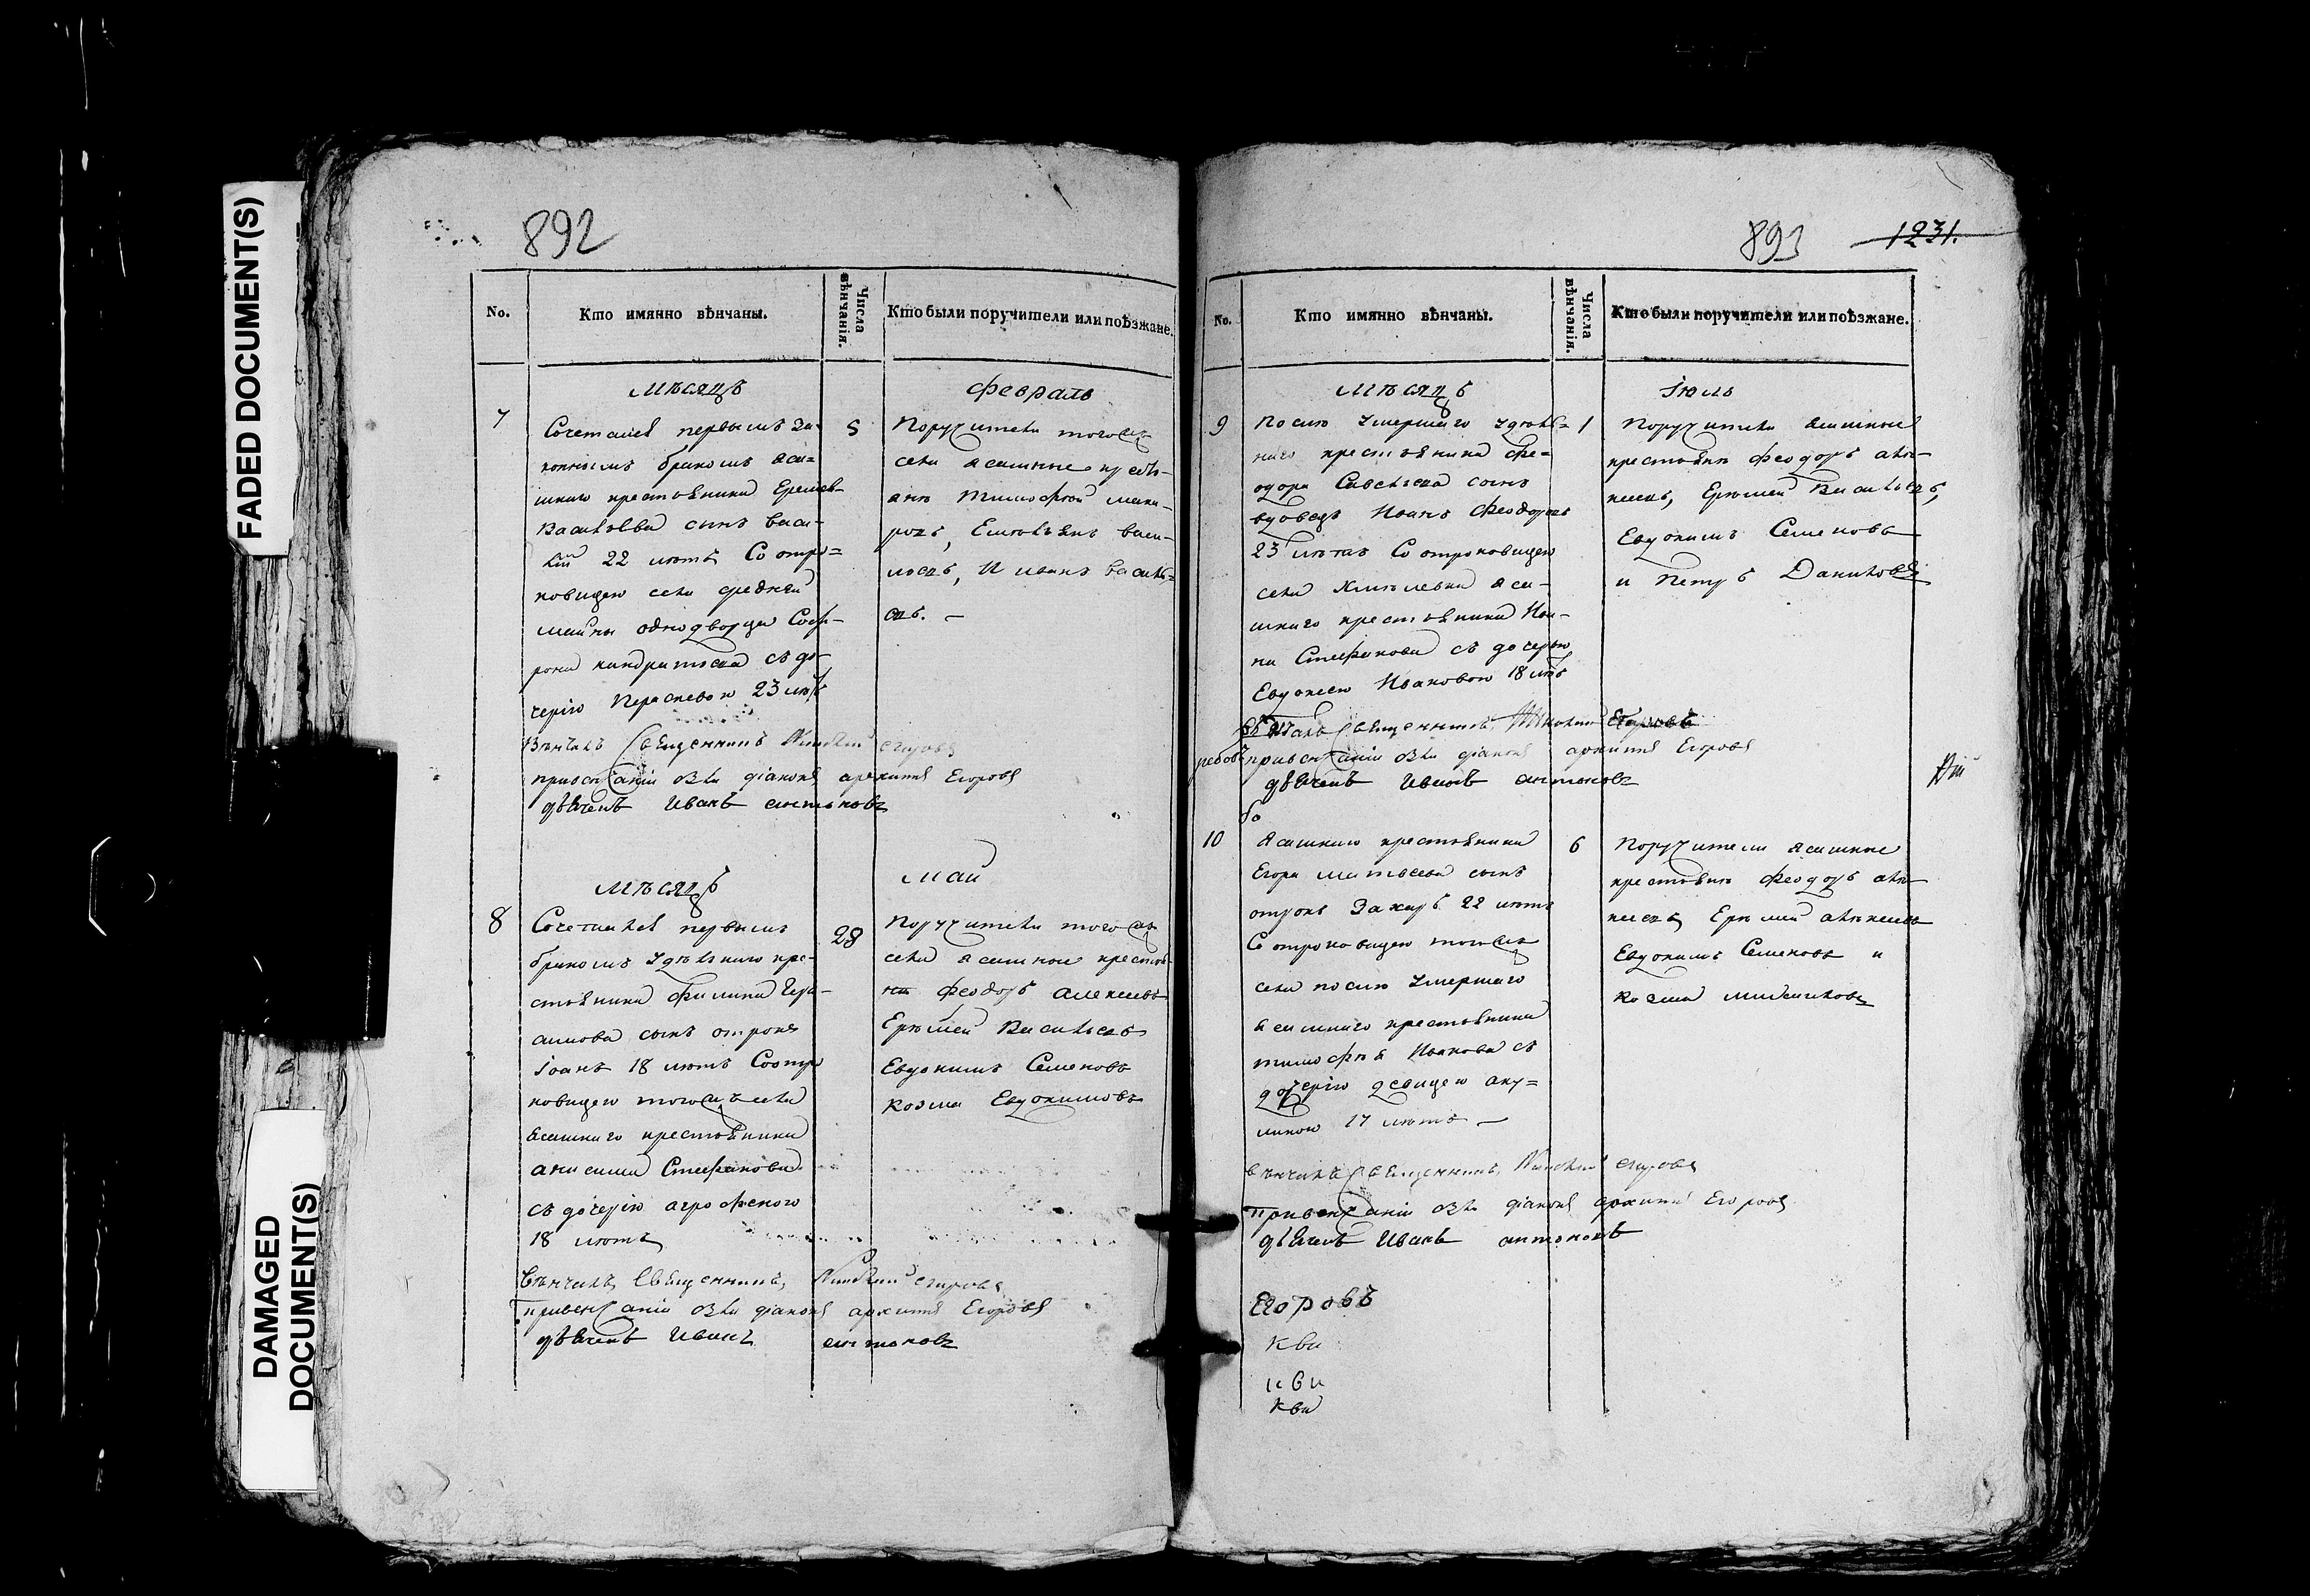 FADED DOCUMENT(S)
DAMAGED
DOCUMENT(S)
892
No.
Кто имянно вѣнчаны.
Числа
вѣнчанія.
Кто были поручители или поѣзжане.
Мѣсяцъ
Февраль
7
Сочетался первымъ за-
коннымъ бракомъ ясаш-
наго крестьянина Еремея
Васильева сынъ Васи-
лій 22 лѣтъ Со отро=
ковицею села средней
майны однодворца Соф-
рона кандратьева съ до-
черію Парасковою 23 лѣтъ
5
Поручители тогожъ
села ясашные крестья-
яне Тимофей мака-
ровъ, Емельянъ васи-
льевъ, И иванъ василь=
евъ. —
Вѣнчалъ Священникъ Николай егоровъ
привенчаніи были діаконъ архиппъ Егоровъ
дьячекъ Иванъ антоновъ
Мѣсяцъ
май
8
Сочетался первымъ
бракомъ удѣльнаго кре-
стьянина Филипа Гера-
симова сынъ отрокъ
Іоанъ 18 лѣтъ Соотро
ковицею тогожъ села
ясашнаго крестьянина
анисима Стефанова
съ дочерію агрофеною
18 лѣтъ
28
Поручители тогожъ
села ясашные крестья-
не Феодоръ алексѣевъ
Ерѣмей Васильевъ
Евдокимъ Семеновъ
козма Евдокимовъ
Вѣнчалъ Священникъ Николай егоровъ
привенчаніи были діаконъ архиппъ Егоровъ
дьячекъ Иванъ антоновъ
893
1231.
No.
Кто имянно вѣнчаны.
Числа
вѣнчанія.
Кто были поручители или поѣзжане.
Мѣсяцъ
Іюль
9
После Умершаго удѣль=
наго крестьянина Фе=
одора Савельева сынъ
вдовецъ Иванъ Феодоровъ
23 лѣтъ Со отроковицею
села Хмѣлевки яса-
шнаго крестьянина Ива-
на Стефанова съ дочерью
Евдокеею Ивановою 18 лѣтъ
1
Поручители ясашные
крестьяне Феодоръ алек-
сеевъ, Ерѣмей Васильевъ,
Евдокимъ Семеновъ
и Петръ Даниловъ
Вѣнчалъ Священникъ Николай Егоровъ
привенчаніи были діаконъ архиппъ Егоровъ
дьячекъ Иванъ антоновъ
10
Ясашнаго крестьянина
Егора матвеева сынъ
отрокъ Захаръ 22 лѣтъ
Со отроковицею тогожъ
села после Умершаго
ясашнаго крестьянина
тимофея Иванова съ
дочерію девицею аку=
линою 17 лѣтъ —
6
Поручители ясашные
крестьяне Феодоръ алек-
сеевъ Ерѣмей алексеевъ
Евдокимъ Семеновъ и
козма
вѣнчалъ Священникъ Николай егоровъ
Привенчаніи были діаконъ архиппъ Егоровъ
дьячекъ Иванъ антоновъ
Егоровъ
кви
кви
кви